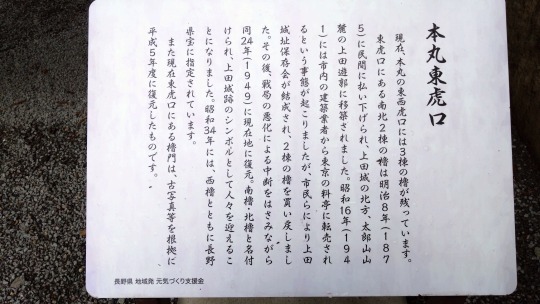 本丸東虎口
現在、本丸の東西虎口には3棟の櫓が残っています。
東虎口にある南北2棟の櫓は明治8年(187
5)に民間に払い下げられ、上田城の北方、太郎山山
麓の上田遊郭に移築されました。昭和16年(194
1)には市内の建築業者から東京の料亭に転売され
るという事態が起こりましたが、市民らにより上田
城址保存会が結成され、2棟の櫓を買い戻しまし
た。その後、戦局の悪化による中断をはさみながら
同24年(1949)に現在地に復元。南櫓・北櫓と名付
けられ、上田城跡のシンボルとして人々を迎えるこ
とになりました。昭和34年には、西櫓とともに長野
県宝に指定されています。
また現在東虎口にある櫓門は、古写真等を根拠に
平成5年度に復元したものです。
長野県 地域発 元気づくり支援金